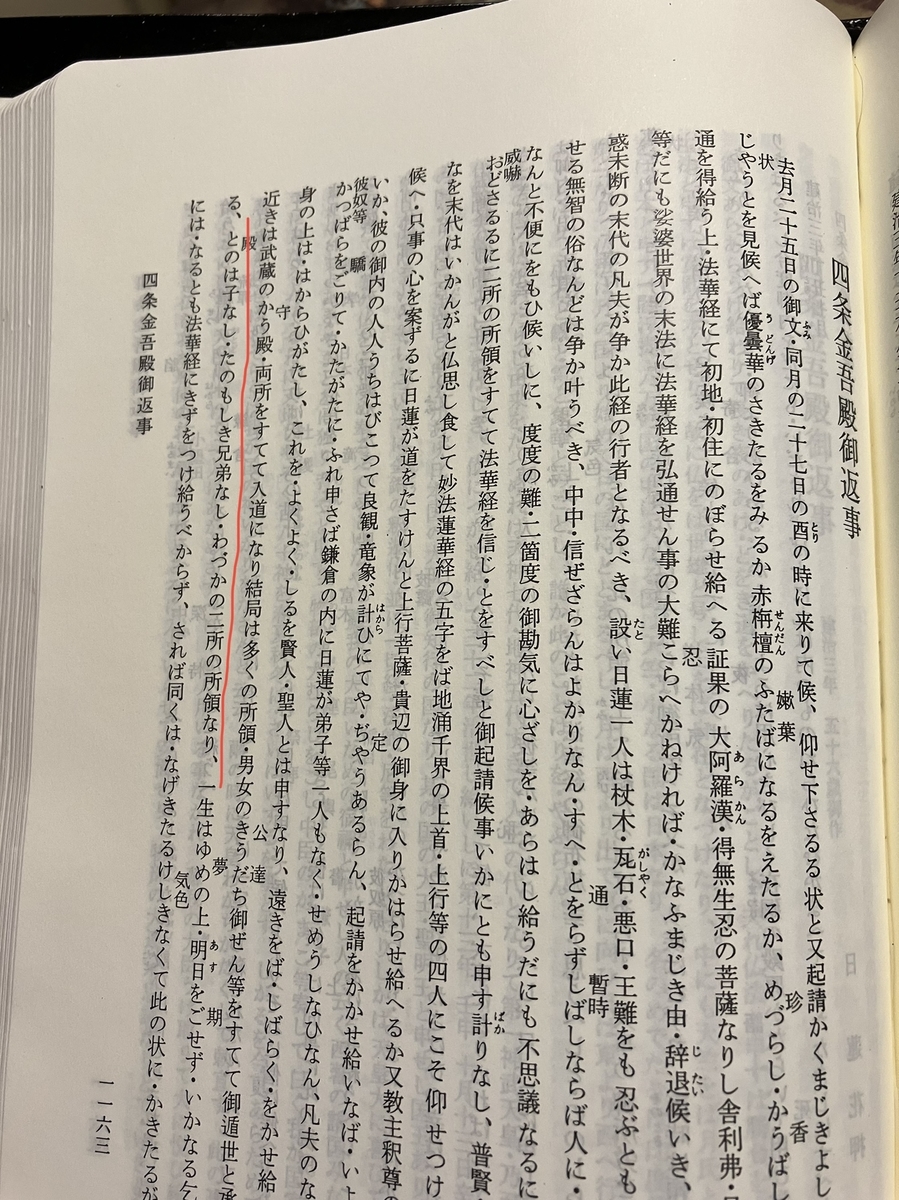 四条金吾殿御返事
去月二十五日の御文・同月の二十七日の酉の時に来りて候、仰せ下さるる状と又起請かくまじきよし
ふみ とり
じやうとを見候へば優曇華のさきたるをみるか赤栴檀のふたばになるをえたるか、めづらし・かうばし
状 うどんげ せんだん 嫩葉 珍 香
通を得給う上・法華経にて初地・初住にのぼらせ給へる証果の大阿羅漢・得無生忍の菩薩なりし舎利弗・
あらかん
等だにも娑婆世界の末法に法華経を弘通せん事の大難こらへかねければ・かなふまじき由・辞退候いき、
忍 じたい
惑未断の末代の凡夫が争か此経の行者となるべき、設い日蓮一人は杖木・瓦石・悪口・王難をも忍ぶとも
たと がしやく
せる無智の俗なんどは争か叶うべき、中中・信ぜざらんはよかりなん・すへ・とをらずしばしならば人に・
通 暫時
なんと不便にをもひ候いしに、度度の難・二箇度の御勘気に心ざしを・あらはし給うだにも不思議なるに
おどさるるに二所の所領をすてて法華経を信じ・とをすべしと御起請候事いかにとも申す計りなし、普賢
威嚇 ばか
なを末代はいかんがと仏思し食して妙法蓮華経の五字をば地涌千界の上首・上行等の四人にこそ仰せつけ
候へ・只事の心を案ずるに日蓮が道をたすけんと上行菩薩・貴辺の御身に入りかはらせ給へるか又教主釈尊の
いか、彼の御内の人人うちはびこつて良観・竜象が計ひにてや・ぢやうあるらん、起請をかかせ給いなば・いよ
はから 定
かつばらをごりて・かたがたに・ふれ申さば鎌倉の内に日蓮が弟子等一人もなく・せめうしなひなん、凡夫のな
彼奴等 驕
身の上は・はからひがたし、これを・よくよく・しるを賢人・聖人とは申すなり、遠きをば・しばらく・をかせ給
近きは武蔵のかう殿・両所をすてて入道になり結局は多くの所領・男女のきうだち御ぜん等をすてて御遁世と承
守 公達
る、とのは子なし・たのもしき兄弟なし・わづかの二所の所領なり、一生はゆめの上・明日をごせず・いかなる乞
殿 夢 あす 期
には・なるとも法華経にきずをつけ給うべからず、されば同くは・なげきたるけしきなくて此の状に・かきたるが
気色
四条金吾殿御返事
一一六三